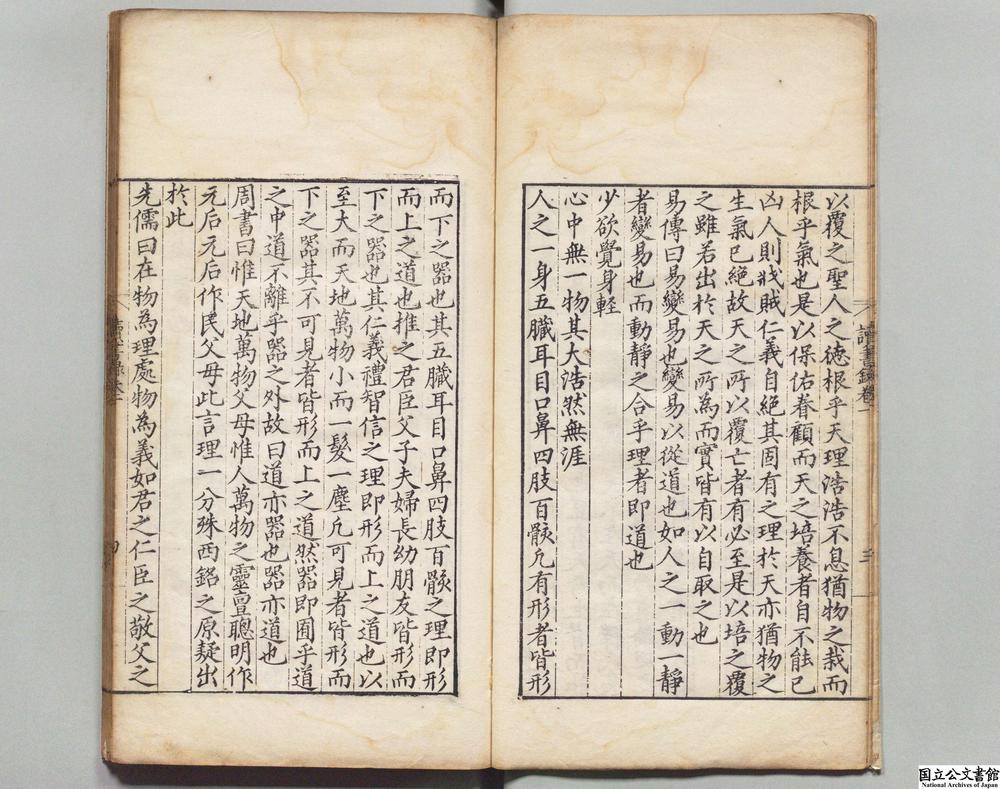 以覆之聖人之徳根乎天理浩浩不息猶物之栽而
根乎氣也是以保佑眷顧而天之培養者自不能已
凶人則戕賊仁義自絶其固有之理於天亦猶物之
生氣已絶故天之所以覆亡者有必至是以培之覆
之雖若出於天之所為而實皆有以自取之也
易傳曰易變易也變易以從道也如人之一動一静
者變易也而動静之合乎理者即道也
少欲覺身軽
心中無一物其大浩然無涯
人之一身五臓耳目口鼻四肢百骸凢有形者皆形
而下之器也其五臓耳目口鼻四肢百骸之理即形
而上之道也推之君臣父子夫婦長幼朋友皆形而
下之器也其仁義禮智信之理即形而上之道也以
至大而天地萬物小而一髪一塵凢可見者皆形而
下之器其不可見者皆形而上之道然器即囿乎道
之中道不離乎器之外故曰道亦器也器亦道也
周書曰惟天地萬物父母惟人萬物之靈亶聰明作
元后元后作民父母此言理一分殊西銘之原疑出
於此
先儒曰在物為理處物為義如君之仁臣之敬父之
讀書録卷一
三
讀書録卷一
四
国立公文書館
National Archives of Japan